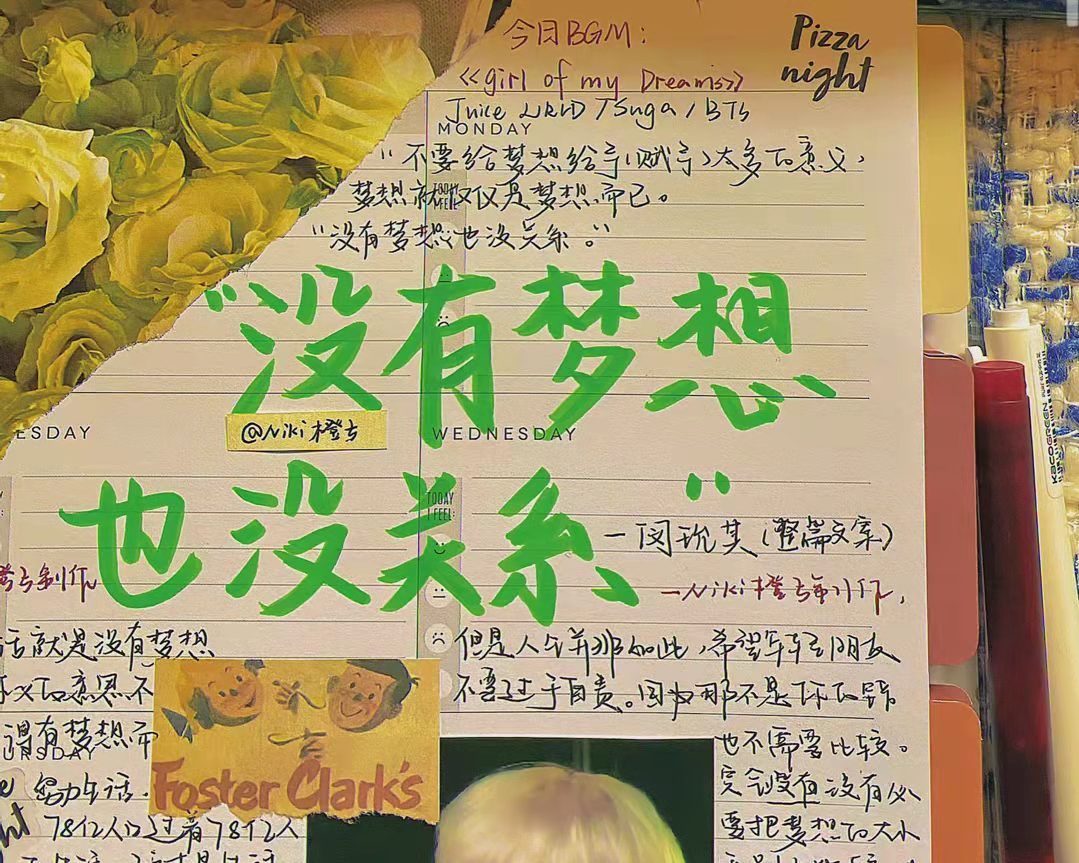 今日BGM:
Pizza
night
<<girl of my Dreams>>
Juice WRLD / Suga / BTS
MONDAY
"不要给梦想给予(赋予)太多的意义,
梦想就仅仅是梦想而已。
"没有梦想也没关系。"
"没有梦想
@Niki橙
ESDAY
WEDNESDAY
也没关系"
TODAY
I FEEL:
—闵玧其(整篇文案)
—Niki橙
制作,
制作
活就是没有梦想
但是人会并那如此,希望年轻朋友
不要过于自责。因为那不是你的错
的意思不
谓有梦想而
URSDAY
也不需要比较。
Foster Clark's
努力生活.
完全没有没有必
78亿人口过着78亿人
要把梦想的大小